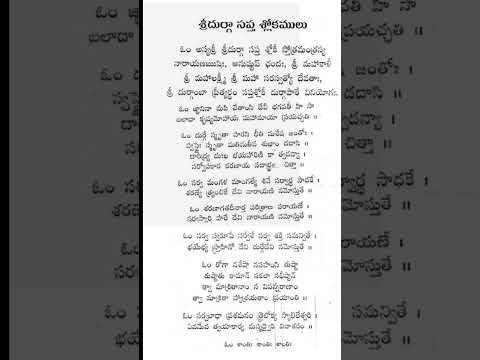 శ్రీదుర్గా సప్త శ్లోకములు
ఓం అస్యశ్రీ శ్రీదుర్గా సప్త శ్లోకీ స్తోత్రమంత్రస్య
నారాయణఋషిః, అనుష్టుప్ ఛందః, శ్రీ మహాకాళీ
శ్రీ మహాలక్ష్మీ శ్రీ మహా సరస్వత్యో దేవతాః,
శ్రీ దుర్గాంబా ప్రీత్యర్థం సప్తశ్లోకీ దుర్గాపాఠే వినియోగః.
ఓం జ్ఞానినా మపి చేతాంసి దేవీ భగవతీ హి సా
బలాదా కృష్యమోహాయ మహామాయా ప్రయచ్ఛతి ॥
ఓం దుర్గే స్మృతా హరసి భీతి మశేష జంతోః ।
స్వస్థైః స్మృతా మతిమతీవ శుభాం దదాసి ॥
దారిద్ర్య దుఃఖ భయహారిణి కా త్వదన్యా ।
సర్వోపకార కరణాయ సదార్ద్ర చిత్తా ॥
ఓం సర్వ మంగళ మాంగళ్యే శివే సర్వార్థ సాధకే
శరణ్యే త్ర్యంబకే దేవి నారాయణి నమోస్తుతే ॥
ఓం శరణాగతదీనార్త పరిత్రాణ పరాయణే ।
సర్వస్యార్తి హరే దేవి నారాయణి నమోస్తుతే ॥
ఓం సర్వ స్వరూపే సర్వేశే సర్వ శక్తి సమన్వితే ।
భయేభ్య స్త్రాహినో దేవి దుర్గేదేవి నమోస్తుతే ॥
ఓం రోగా నశేషా నపహంసి తుష్టా
రుష్టాతు కామాన్ సకలా నభీష్టాన్
త్వా మాశ్రితానాం న విపన్నరాణాం
త్వా మాశ్రితా హ్యాశ్రయతాం ప్రయాంతి ॥
ఓం సర్వబాధా ప్రశమనం త్రైలోక్య స్యాఖిలేశ్వరి ।
ఏవమేవ త్వయాకార్య మస్మద్వైరి వినాశనం ॥
ఓం శాంతిః శాంతిః శాంతిః